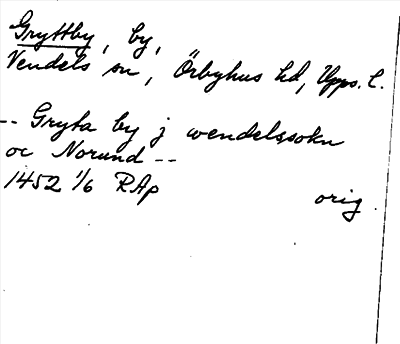 Gryttby, by,
Vendels sn, Örbyhus hd, Upps. l.
-- Gryta by j wendelssokn
oc Norund --
1452 1/6 RAp orig.